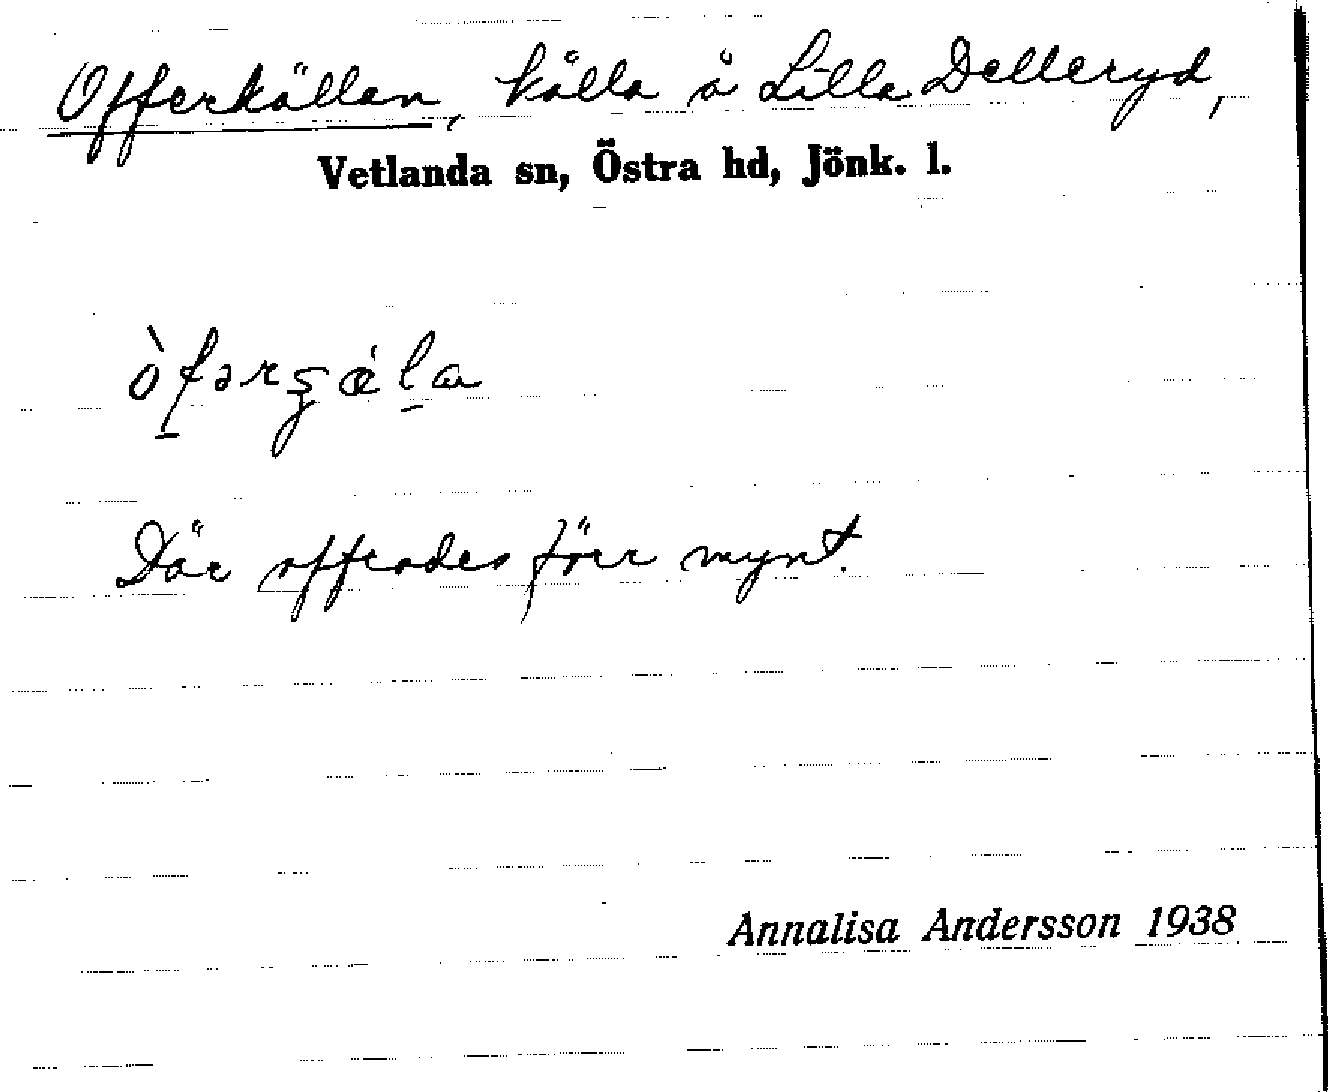 Offerkällan, källa å Lilla Delleryd,
Vetlanda sn, Östra hd, Jönk. l.
Där offrades förr mynt.
Annalisa Andersson 1938